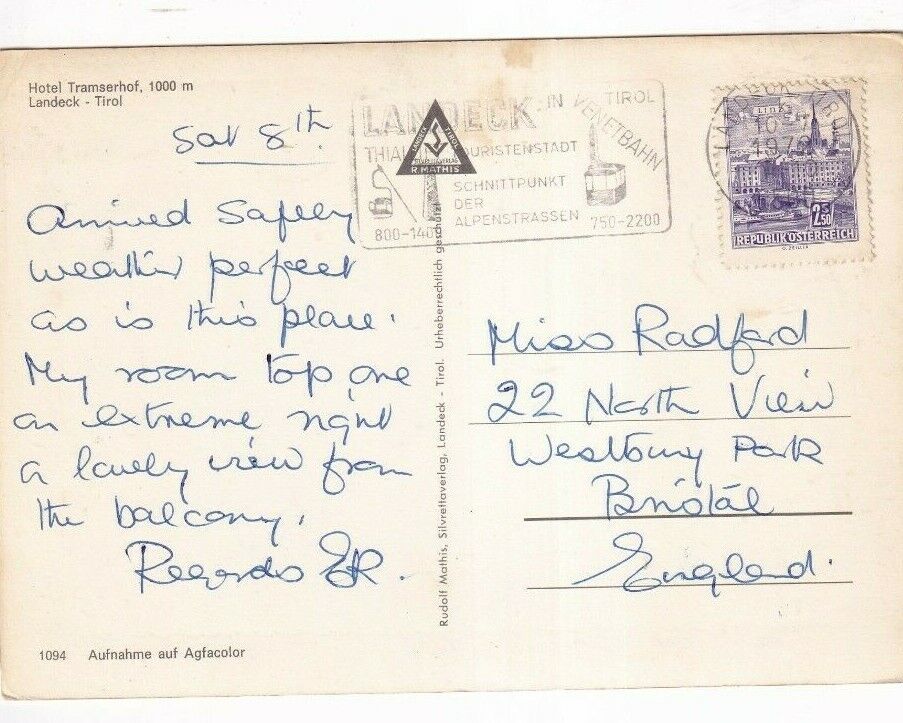 Hotel Tramserhof, 1000 m
Landeck - Tirol
Sat 8th
Arrived Safely
weather perfect
as is this place.
My room top one
on extreme right
a lovely view from
the balcony.
Regards ER.
1094 Aufnahme auf Agfacolor
Rudolf Mathis, Silvrettaverlag, Landeck - Tirol. Urheberrechtlich geschützt
R. MATHIS
LANDECK IN TIROL
VENETBAHN
TOURISTENSTADT
SCHNITTPUNKT
DER
ALPENSTRASSEN
750-2200
LINZ
2.50
REPUBLIK ÖSTERREICH
Miss Radford
22 North View
Westbury Park
Bristol
England.